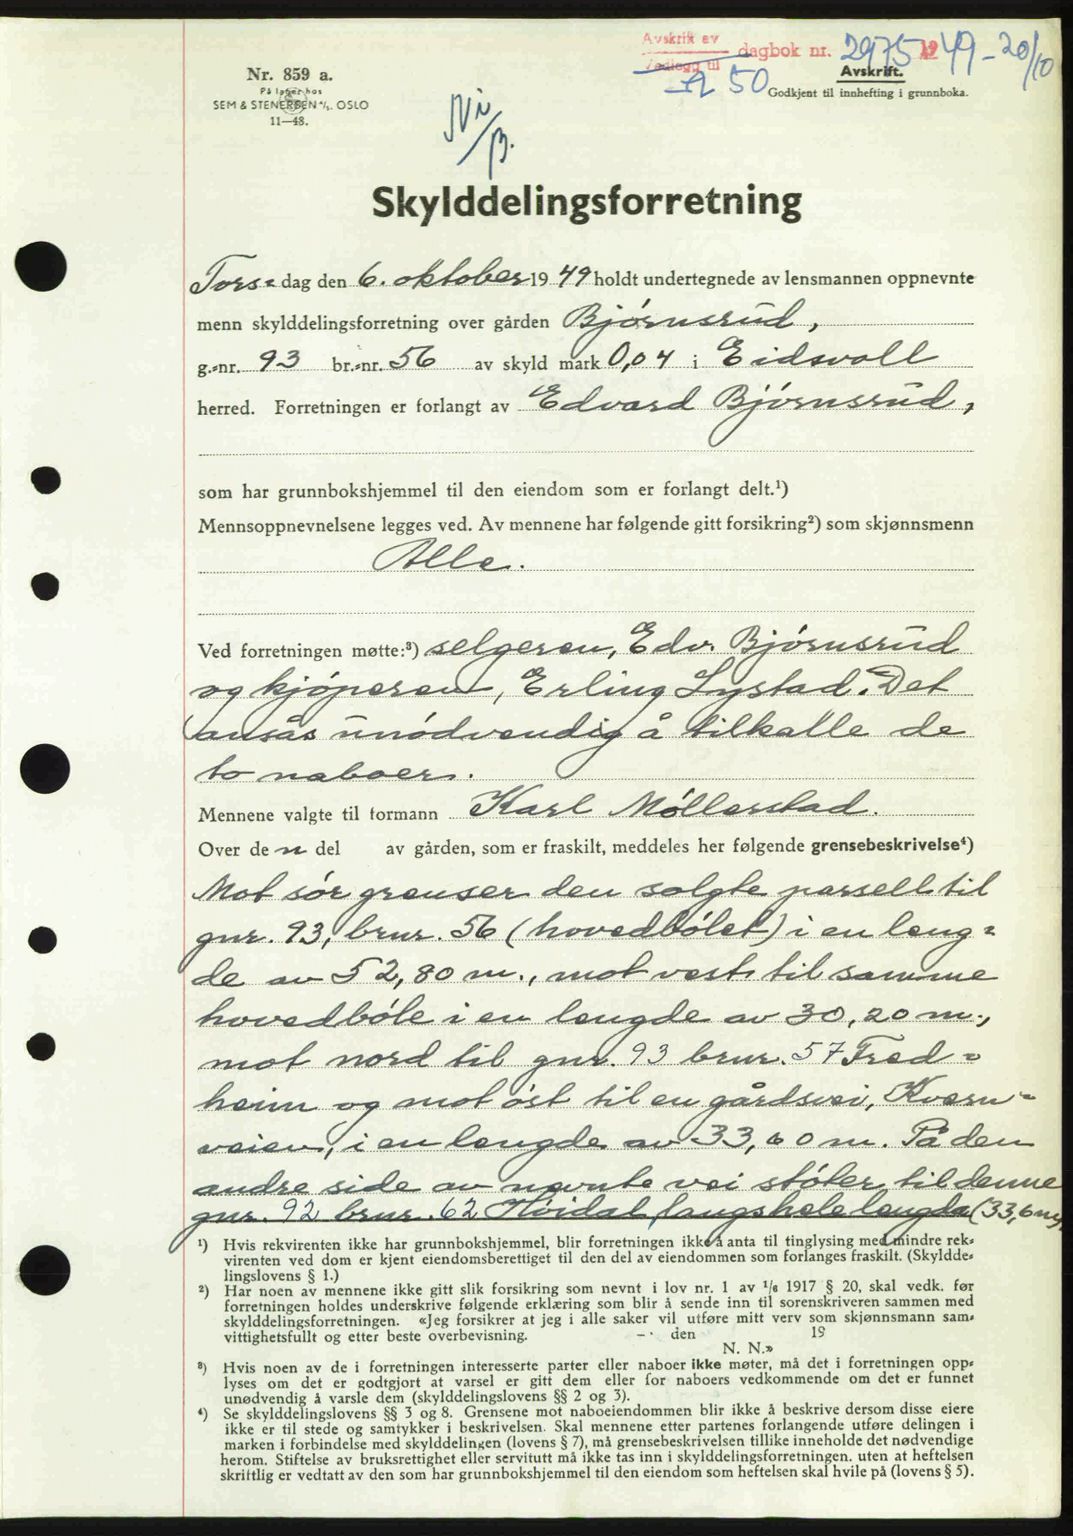 Avskrift av
Vedlegg til
dagbok nr. 2975 1949 - 20/10
A 50
Avskrift.
Godkjent til innhefting i grunnboka.
Nr. 859 a.
På lager hos
SEM & STENERSEN A/S. OSLO
11—48.
Skylddelingsforretning
Tors- dag den 6. oktober 1949 holdt undertegnede av lensmannen oppnevnte
menn skylddelingsforretning over gården Bjørnsrud,
g.-nr. 93 br.-nr. 56 av skyld mark 0,04 i Eidsvoll
herred. Forretningen er forlangt av Edvard Bjørnsrud,
som har grunnbokshjemmel til den eiendom som er forlangt delt.¹)
Mennsoppnevnelsene legges ved. Av mennene har følgende gitt forsikring²) som skjønnsmenn
Alle.
Ved forretningen møtte:³) selgeren, Edv. Bjørnsrud
og kjøperen, Erling Lystad. Det
ansås unødvendig å tilkalle de
to naboer.
Mennene valgte til formann Karl Møllerstad.
Over den del av gården, som er fraskilt, meddeles her følgende grensebeskrivelse⁴)
Mot sør grenser den solgte parsell til
gnr. 93, brnr. 56 (hovedbølet) i en leng-
de av 52,80 m., mot vest til samme
hovedbøle i en lengde av 30,20 m.,
mot nord til gnr. 93 brnr. 57 Fred-
heim og mot øst til en gårdsvei, Kvern-
veien, i en lengde av 33,60 m. På den
andre side av nevnte vei støter til denne
gnr. 92 brnr. 62 Høidal langs hele lengda (33,6 m)
¹) Hvis rekvirenten ikke har grunnbokshjemmel, blir forretningen ikke å anta til tinglysing med mindre rek-
virenten ved dom er kjent eiendomsberettiget til den del av eiendommen som forlanges fraskilt. (Skyldde-
lingslovens § 1.)
²) Har noen av mennene ikke gitt slik forsikring som nevnt i lov nr. 1 av 1/6 1917 § 20, skal vedk. før
forretningen holdes underskrive følgende erklæring som blir å sende inn til sorenskriveren sammen med
skylddelingsforretningen. «Jeg forsikrer at jeg i alle saker vil utføre mitt verv som skjønnsmann sam-
vittighetsfullt og etter beste overbevisning. — den 19
N. N.»
³) Hvis noen av de i forretningen interesserte parter eller naboer ikke møter, må det i forretningen opp-
lyses om det er godtgjort at varsel er gitt dem eller for naboers vedkommende om det er funnet
unødvendig å varsle dem (skylddelingslovens §§ 2 og 3).
⁴) Se skylddelingslovens §§ 3 og 8. Grensene mot naboeiendommen blir ikke å beskrive dersom disse eiere
ikke er til stede og samtykker i beskrivelsen. Skal mennene etter partenes forlangende utføre delingen i
marken i forbindelse med skylddelingen (lovens § 7), må grensebeskrivelsen tillike inneholde det nødvendige
herom. Stiftelse av bruksrettighet eller servitutt må ikke tas inn i skylddelingsforretningen. uten at heftelsen
skriftlig er vedtatt av den som har grunnbokshjemmel til den eiendom som heftelsen skal hvile på (lovens § 5).